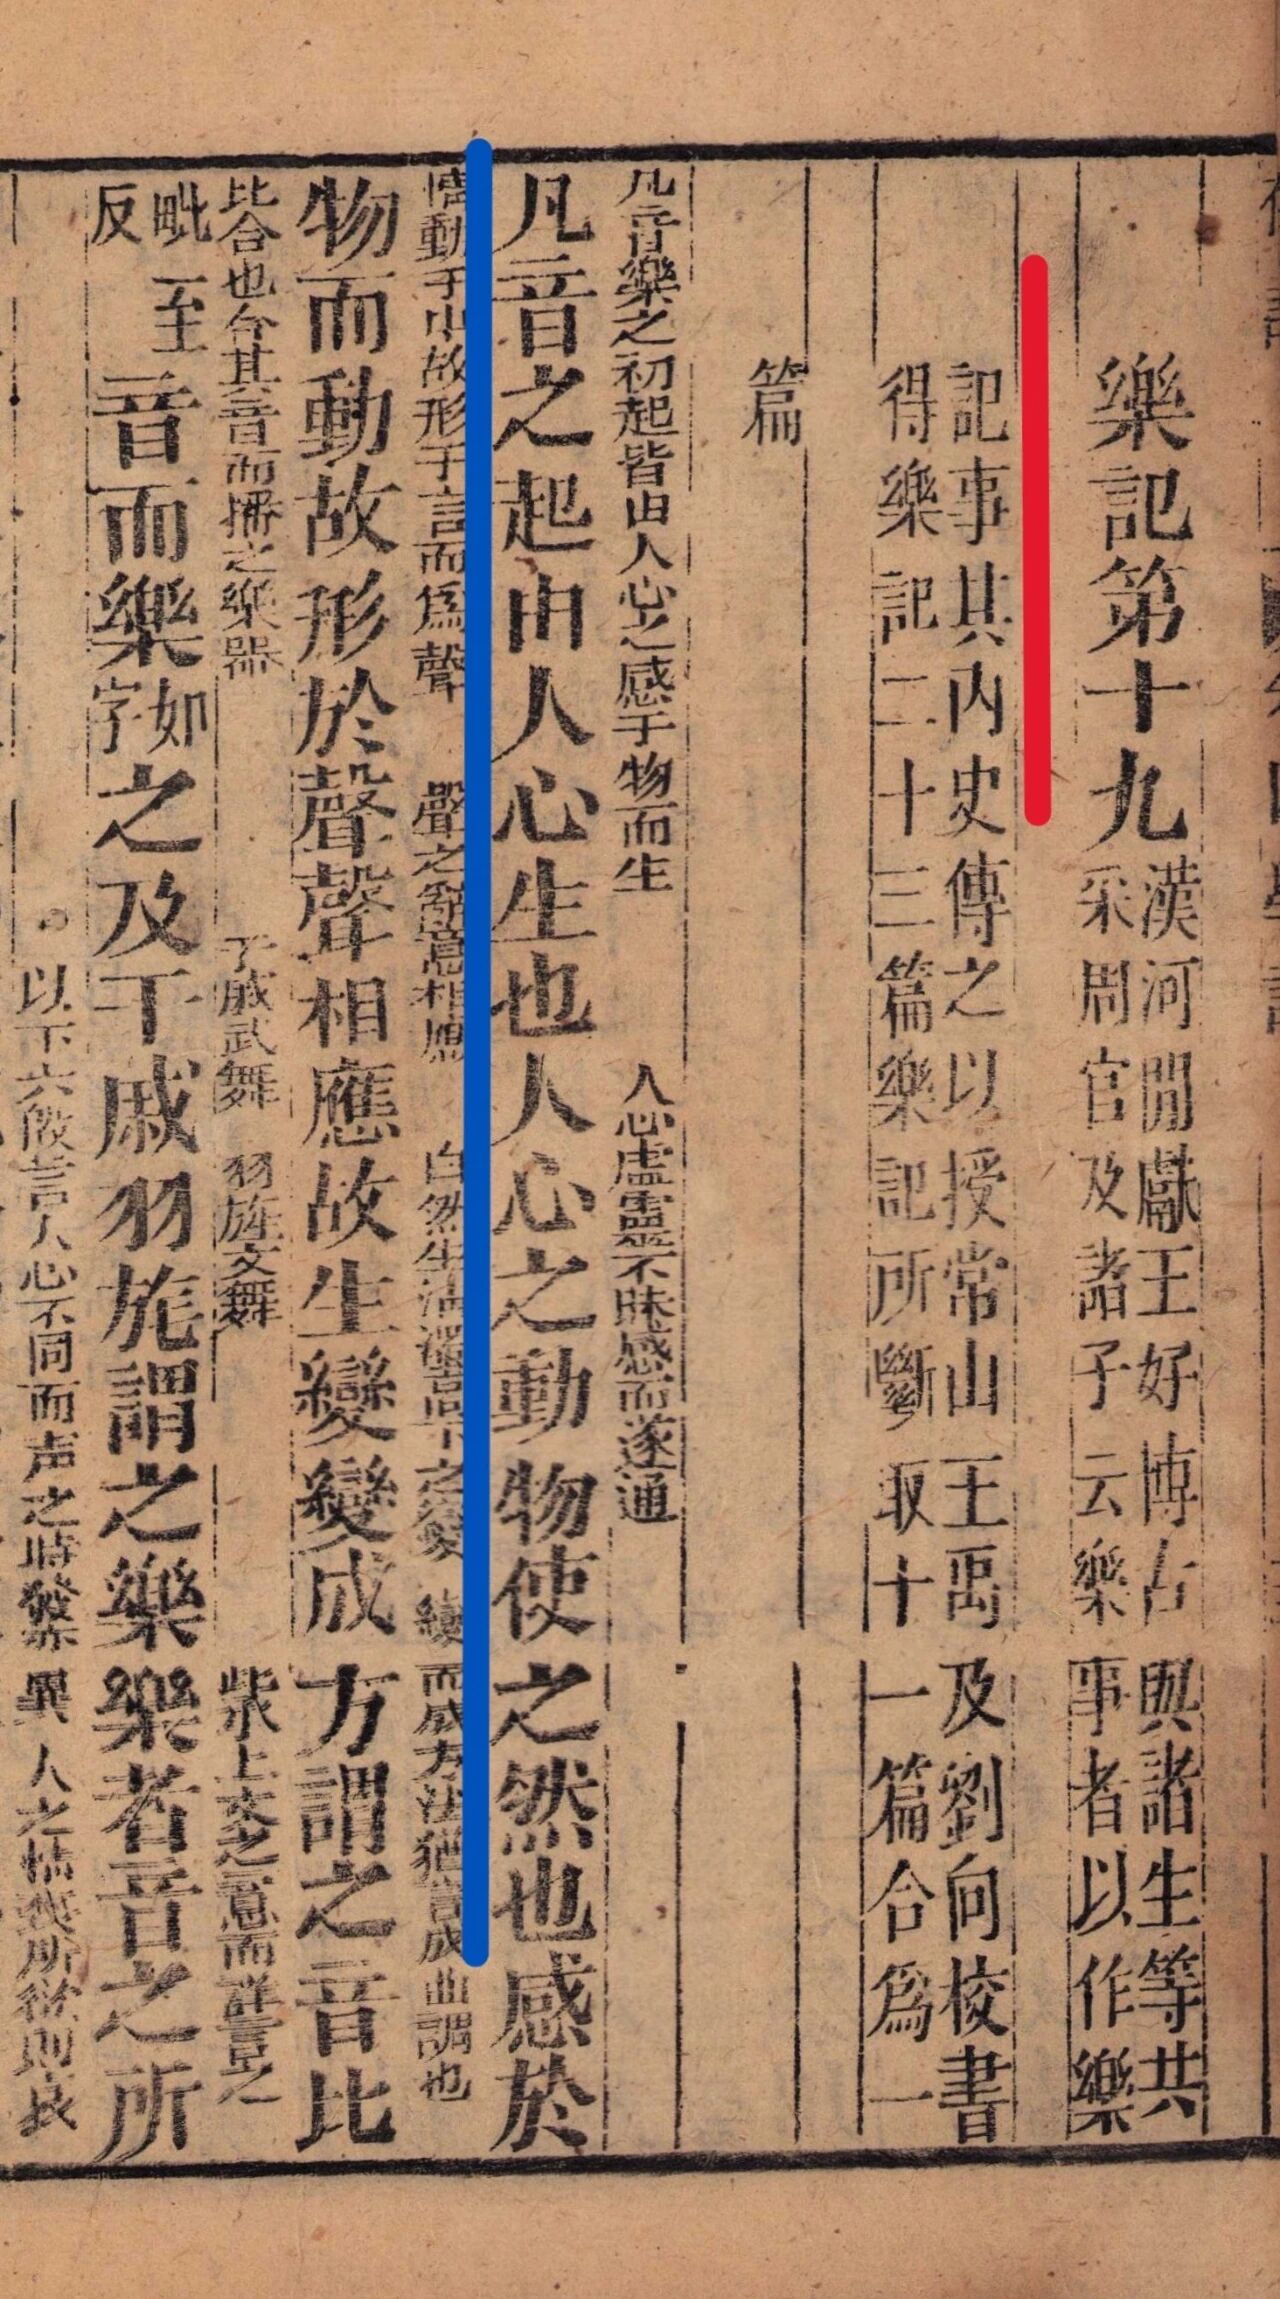 樂記第十九 漢河間獻王好博古與諸生等共
采周官及諸子云樂事者以作樂
記事其內史傳之以授常山王禹及劉向校書
得樂記二十三篇樂記所斷取十一篇合爲一
篇
凡音樂之初起皆由人心之感于物而生 人心虛靈不昧感而遂通
凡音之起由人心生也人心之動物使之然也感於
情動于中故形于言而爲聲 聲之辭意相應 自然生清濁高下之變 變而成方法猶言成曲調也
物而動故形於聲聲相應故生變變成方謂之音比
比合也合其音而播之樂器 干戚武舞 羽旄文舞 紫上文之意而詳言之
毗至反音而樂如字之及干戚羽旄謂之樂樂者音之所
以下六段言人心不同而声之時發異 人之情喪所欲則哀